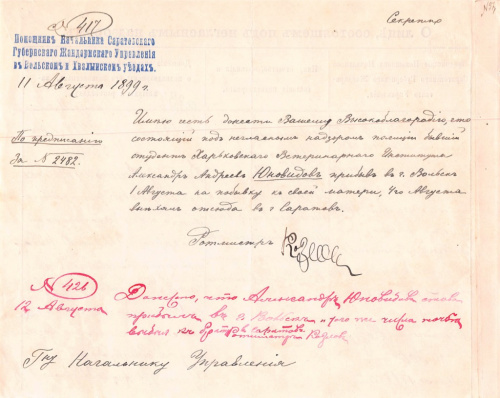 Секретно
№ 417
Помощникъ Начальника Саратовскаго
Губернскаго Жандармскаго Управленія
въ Вольскомъ и Хвалынскомъ уѣздахъ.
11 Августа 1899 г.
Имѣю честь донести Вашему Высокоблагородію, что
состоящій подъ негласнымъ надзоромъ полиціи бывшій
По предписанію
За № 2482.
студентъ Харьковскаго Ветеринарнаго Института
Александръ Андреевъ Юновидовъ прибылъ въ г. Вольскъ
1 Августа на побывку къ своей матери, 4го Августа
выѣхалъ отсюда въ г. Саратовъ.
Ротмистръ
№ 421
12 Августа
Донесено, что Александръ Юновидовъ
прибылъ въ г. Вольскъ и того же числа
выбылъ въ Саратовъ.
Ротмистръ
Гну Начальнику Управленія